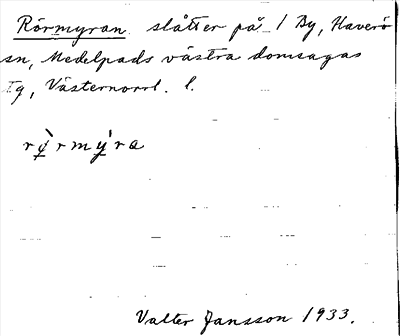 Rörmyran slåtter på 1 By, Haverö
sn, Medelpads västra domsagas
tg, Västernorrl. l.
rø̀rmýra
Valter Jansson 1933.